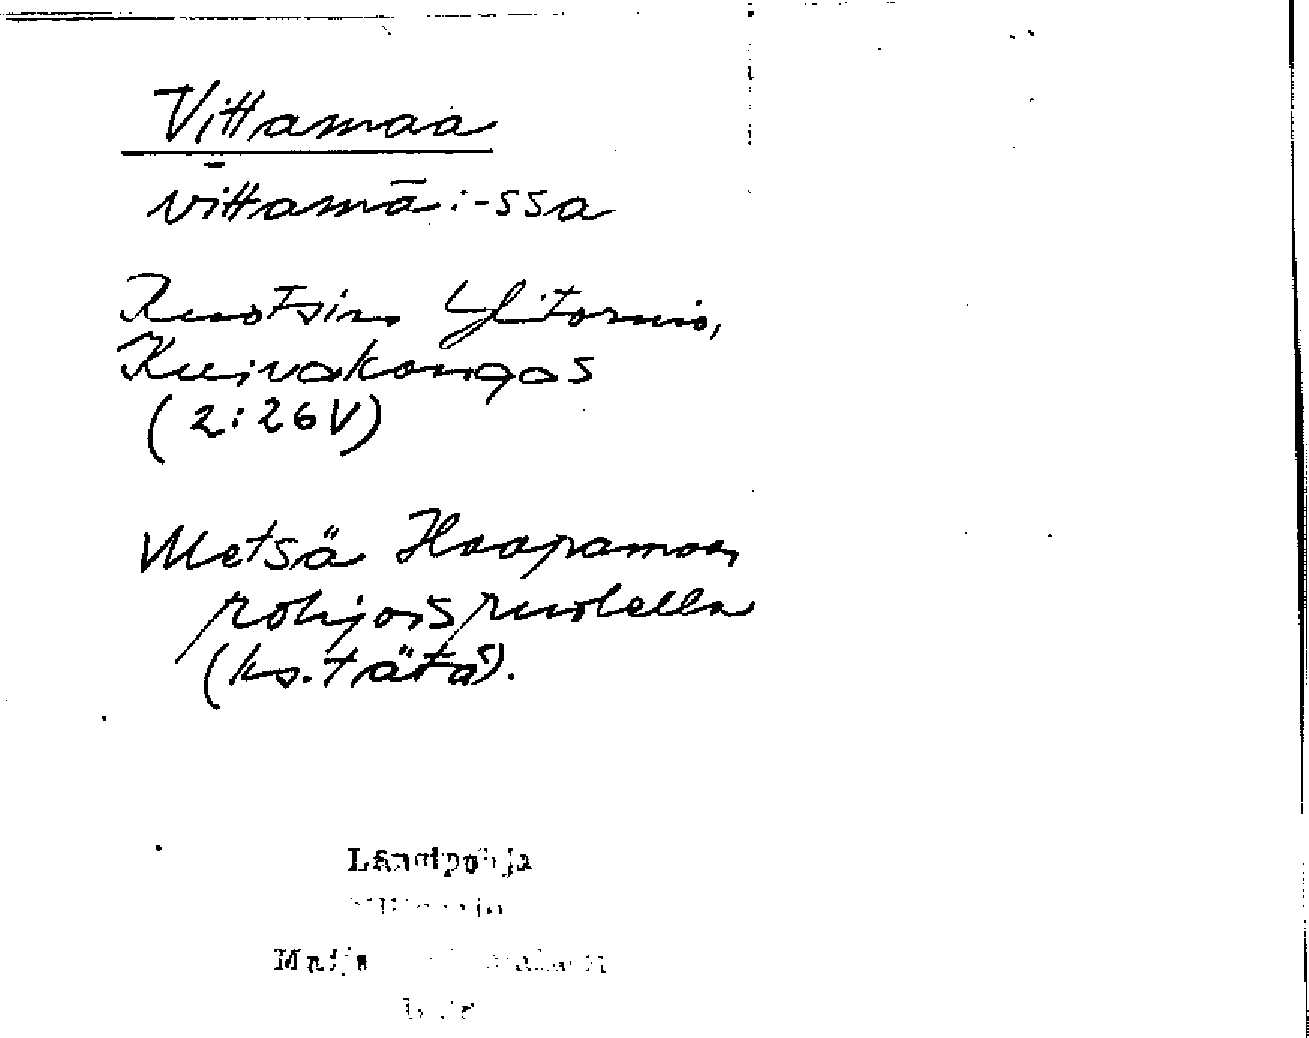 Vittamaa
vittamā: -ssa
Ruotsin Ylitornio,
Kuivakangas
(2:26V)
Metsä Haapamaan
pohjoispuolella
(ks. tätä).
Länsipohja
Maija